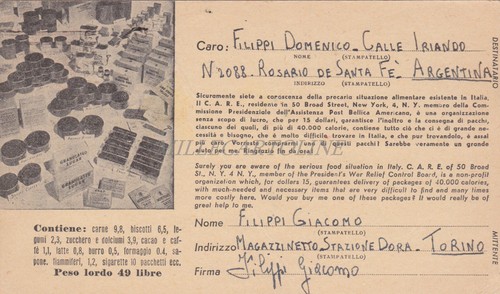 Caro: FILIPPI DOMENICO - CALLE IRIANDO
NOME (STAMPATELLO)
N 2088 - ROSARIO DE SANTA FÈ - ARGENTINA
INDIRIZZO (STAMPATELLO)
DESTINATARIO
Sicuramente siete a conoscenza della precaria situazione alimentare esistente in Italia,
Il C. A. R. E., residente in 50 Broad Street, New York, 4, N. Y. membro della Com
missione Presidenziale dell'Assistenza Post Bellica Americano, è una organizzazione
senza scopo di lucro, che per 15 dollari, garantisce l'inoltro e la consegna di pacchi,
ciascuno dei quali, di più di 40.000 calorie, contiene tutto ciò che ci è di grande ne-
cessità e bisogno, che è molto difficile, trovare in Italia, e che costa molto di più
al caro paese. Vorreste comprarmi uno di questi pacchi! Sarebbe veramente un grande
Ringrazio fin da ora!
Surely you are aware of the serious food situation in Italy. C. A. R. E. of 50 Broad
St., N. Y. 4 N. Y., member of the President's War Relief Control Board, is a non-profit
organization which, for dollars 15, guarantees delivery of packages of 40.000 calories,
with much-needed and necessary items that are very difficult to find and many times
more costly here. Would you buy me one of these packages? It would really be of
great help to me.
Nome FILIPPI GIACOMO
(STAMPATELLO)
Indirizzo MAGAZZINETTO STAZIONE DORA - TORINO
(STAMPATELLO)
Firma Filippi Giacomo
MITTENTE
Contiene: carne 9,8, biscotti 6,5, le-
gumi 2,3, zucchero e dolciumi 3,9, cacao e caf-
fè 1,1, latte 0,8, burro 0,5, formaggio 0.4, sa-
pone, fiammiferi, 1,2, sigarette 10 pacchetti ecc.
Peso lordo 49 libre